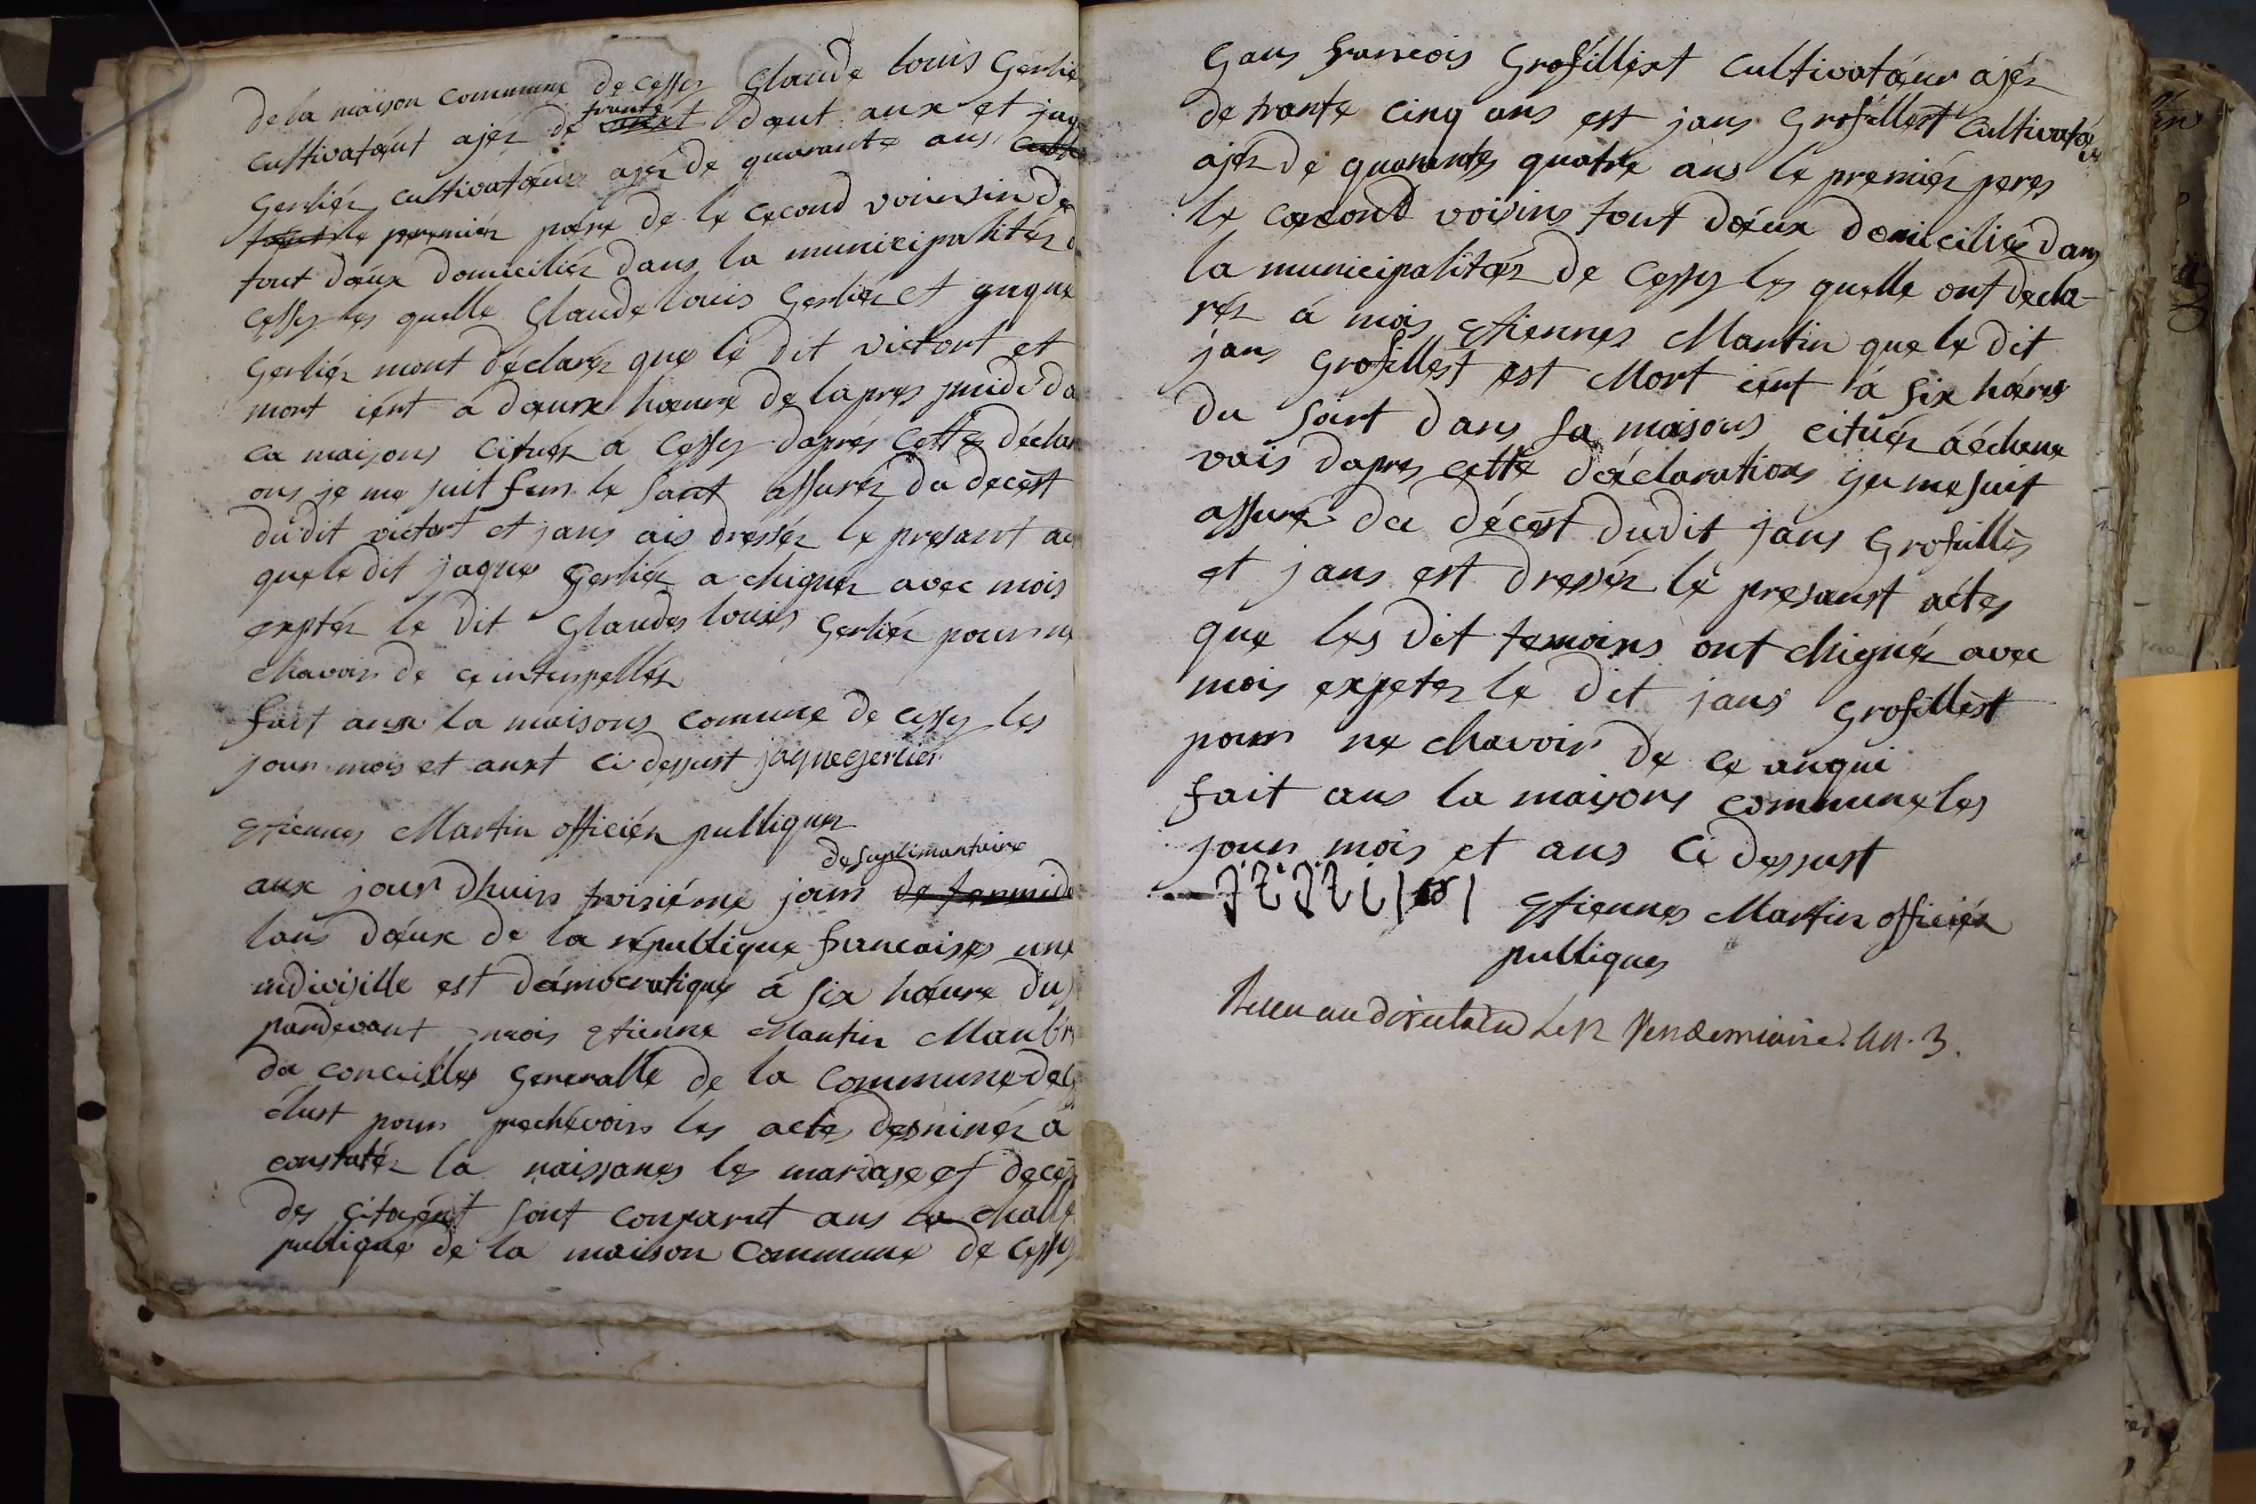 de la maison commune de cessy Glaude louis Gerlié
cultivatéut ajér de trante dœut aux et jaq
Gerliér cultivatœur ajér de quarante ans
le premiér pœre de le cecond voiensin de
tout dœux domiciliér dans la municipalitér d
cessy les quelle Glaude louis Gerliér et jaque
Gerliér mont déclarér que lé dit victort et
mort iért a dœuxe hœure de lapres midi da
ca maisons cituér a cessy daprés cette déclar
ons je me suit assurér du decest
dudit victort et jans ais dressér le presant ac
quele dit jaque Gerliér a chignér avec mois
exptér le dit Glaudes louis Gerliér pour ne
chavoir de ce interpellér
fait aux la maisons comune de cessy les
jour mois et anst ci dessust jaque gerlier
Etiennes Martin officiér publiques
de suplimantaire
aux jour dhuis troisiéme jour de
lans dœux de la républigue francaises une
indivisille est démocratiques á six hœure du
pardevant mois etienne Martin Manbr
du conceilles generalle de la commune de C
élust pour prechévoir les actes desninér á
constatér la naissances les mariage et decés
des citoiént sont conparut ans la challe
publique de la maison commune de cessy
Gans francois Grofillixt cultivatœur ajér
de trante cinq ans est jans Grofillest cultivatœur
ajér de quarantes quatre ans le premiér peres
le cecond voisins tout dœux domiciliér dans
la municipalitér de cessy les quelle ont decla-
rér á mois Etiennes Martin que le dit
jans Grofillest est Mort iért á six hœres
du soirt dans sa maisons cituér á échene
vais dapres cette déclarations je me suit
assuré du décest dudit jans Grofillis
et jans est dressér lé presanst actes
que les dit temoins ont chignér avec
mois expeter le dit jans Grofillest
pour ne chavoir de ce anqui
fait ans la maisons commune les
jour mois et ans ci dessust
Etiennes Martin officiér
publiques
le 12 Vendemiaire. an. 3.